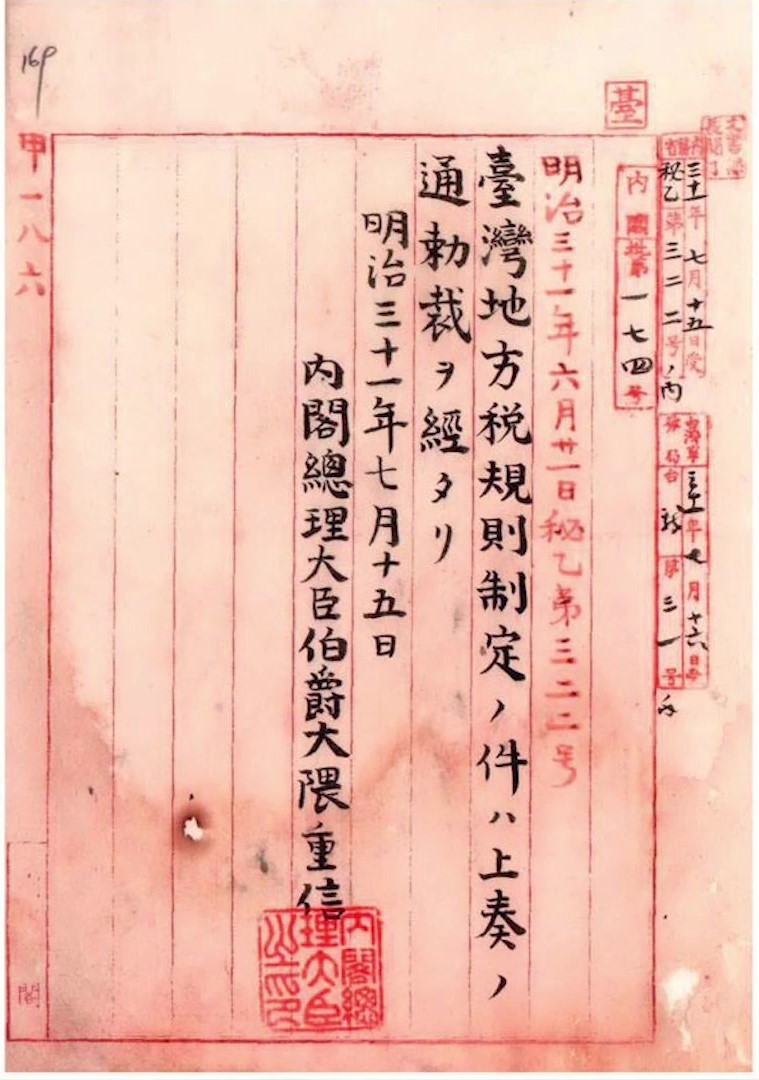 169
臺
明治三十一年六月廿一日秘乙第三二二号
臺灣地方税規則制定ノ件ハ上奏ノ
通勅裁ヲ經タリ
明治三十一年七月十五日
内閣總理大臣伯爵大隈重信
内閣總理大臣之印
甲一八六
三十一年七月十五日受
秘乙第三二二号ノ内
三十一年七月十六日
第三一号
一七四号
閣